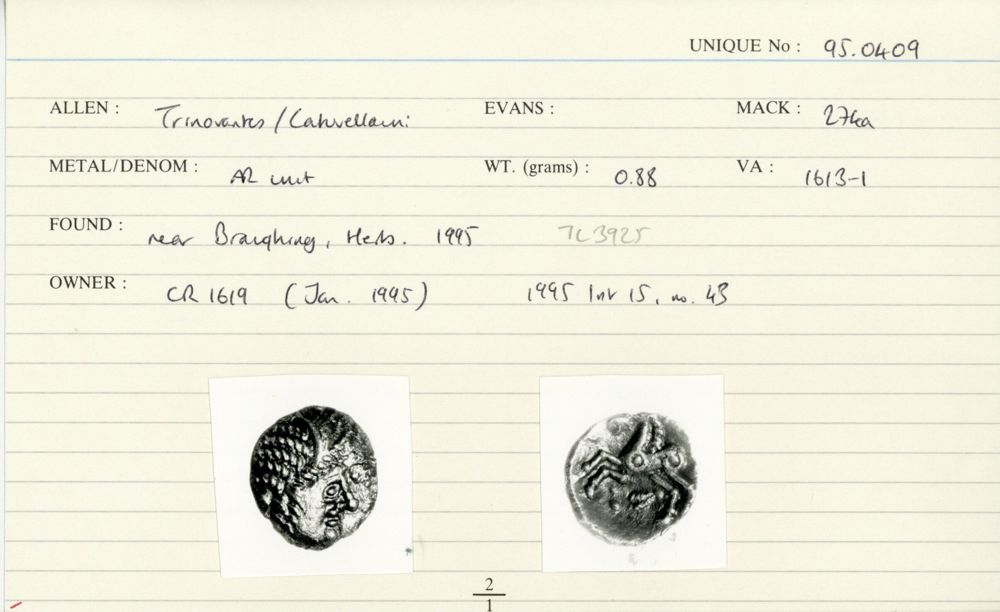 UNIQUE No : 95.0409
ALLEN : Trinovantes / Catuvellauni EVANS : MACK : 274a
METAL/DENOM : AR unit WT. (grams) : 0.88 VA : 1613-1
FOUND : near Braughing, Herts. 1995 TL 3925
OWNER : CR 1619 (Jan. 1995) 1995 Inv 15, no. 43
2
1